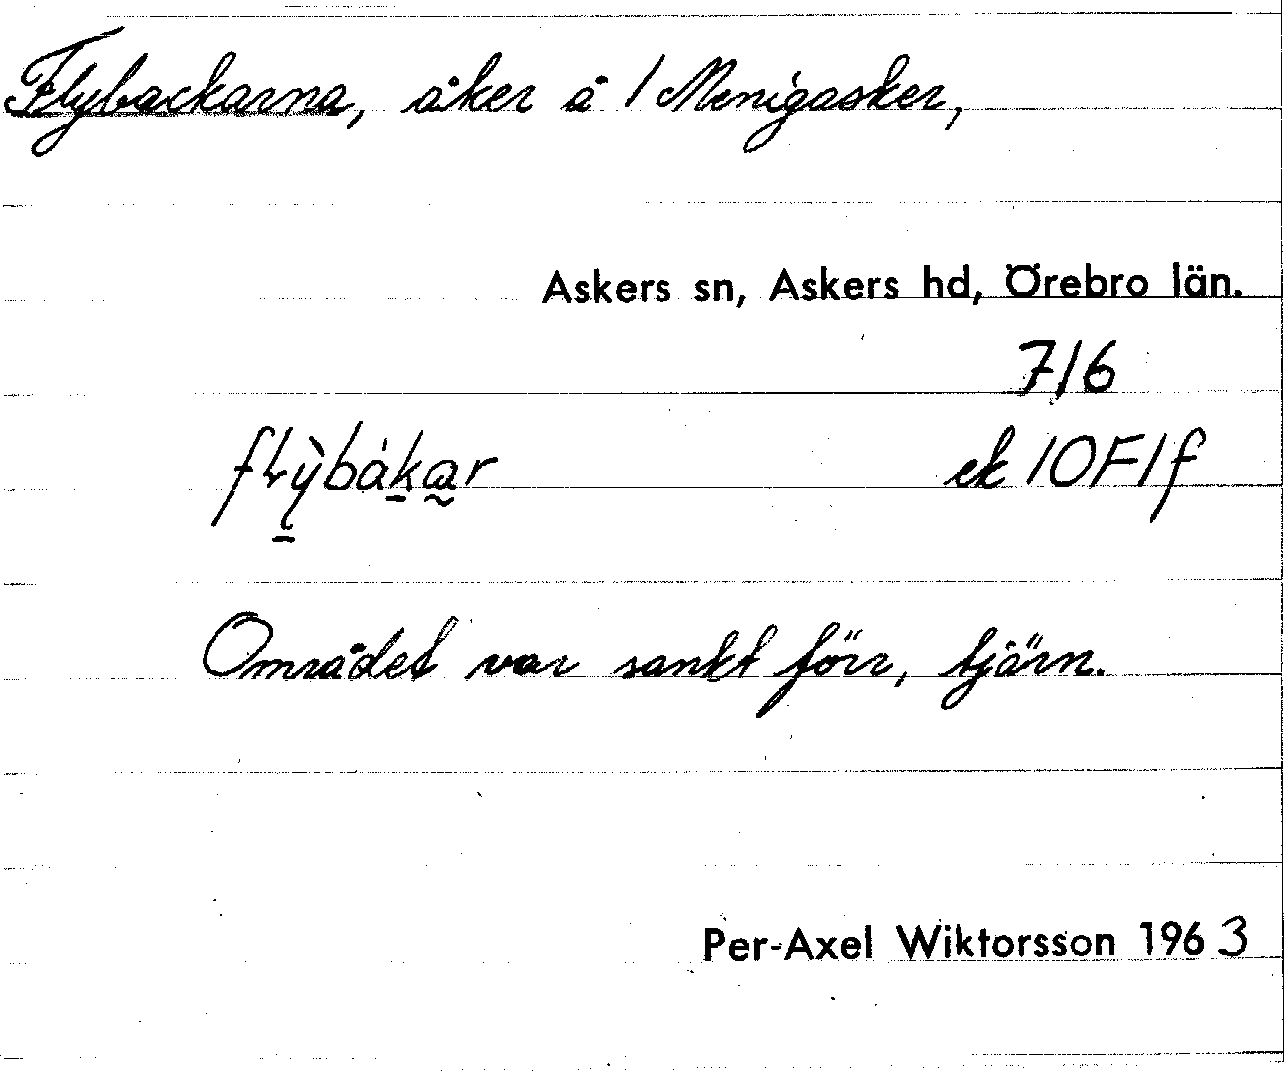 Flybackarna, åker å 1 Menigasker,
Askers sn, Askers hd, Örebro län.
7/6
flỳbákar ek 10F1f
Området var sankt förr, tjärn.
Per-Axel Wiktorsson 1963